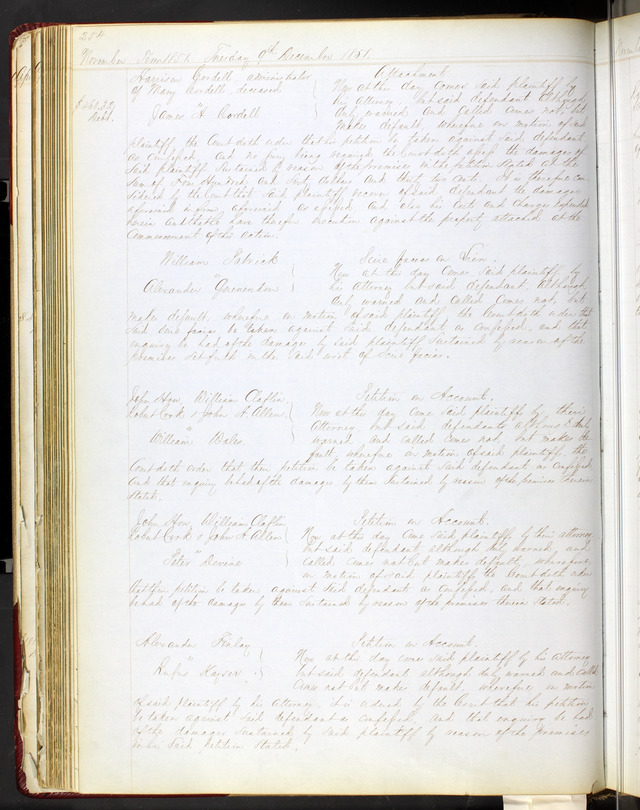 254
November Term 1851. Tuesday 9th December 1851.
Harrison Cordell administrator Attachment
of Mary Cordell deceased Now at this day comes said plaintiff by
vs his attorney, but said defendant although
James H Cordell duly warned and called comes not, but
Debt. makes default, wherefore on motion of said
plaintiff, the Court doth order that his petition be taken against said defendant
as confessed. And no jury being required the Court doth assess the damages of
said plaintiff sustained by reason of the premises in the petition stated at the
sum of Hundred and Sixty dollars and thirty two cents. It is therefore con
sidered by the Court that said plaintiff recover of said defendant the damages
aforesaid in form aforesaid assessed and also his costs and charges expended
herein and that he have therefor execution against the property attached at the
Commencement of this action.
William Patrick Scire facias on Lien.
vs Now at this day comes said plaintiff by
Alexander his attorney but said defendant although
duly warned and called comes not, but
makes default, wherefore on motion of said plaintiff, the Court doth order that
said scire facias be taken against said defendant as confessed, and that
inquiry be had of the damages by said plaintiff sustained by reason of the
premises set forth in the said writ of scire facias.
John How, William Claflin Petition on Account.
Robert Cook & John A. Allen Now at this day come said plaintiffs by their
vs attorney but said defendants although duly
William Wales warned, and called comes not, but makes de
fault, wherefore on motion of said plaintiff, the
Court doth order that their petition be taken against said defendant as confessed,
And that inquiry be had of the damages by them sustained by reason of the premises therein
stated.
John How, William Claflin Petition on Account.
Robert Cook & John A Allen Now at this day come said plaintiffs by their attorney
vs but said defendant, although duly warned, and
Peter Devine called comes not but makes default, wherefore
on motion of said plaintiff the Court doth order
that their petition be taken against said defendant as confessed, and that inquiry
be had of the damages by them sustained by reason of the premises therein stated.
Alexander Finlay Petition on Account.
vs Now at this day come said plaintiff by his attorney
Rufus Kayser but said defendant although duly warned and called
comes not but makes default. wherefore on motion
of said plaintiff by his attorney, it is ordered by the Court that his petition
be taken against said defendant as confessed, and that inquiry be had
of the damages sustained by said plaintiff by reason of the premises
in his said petition stated.